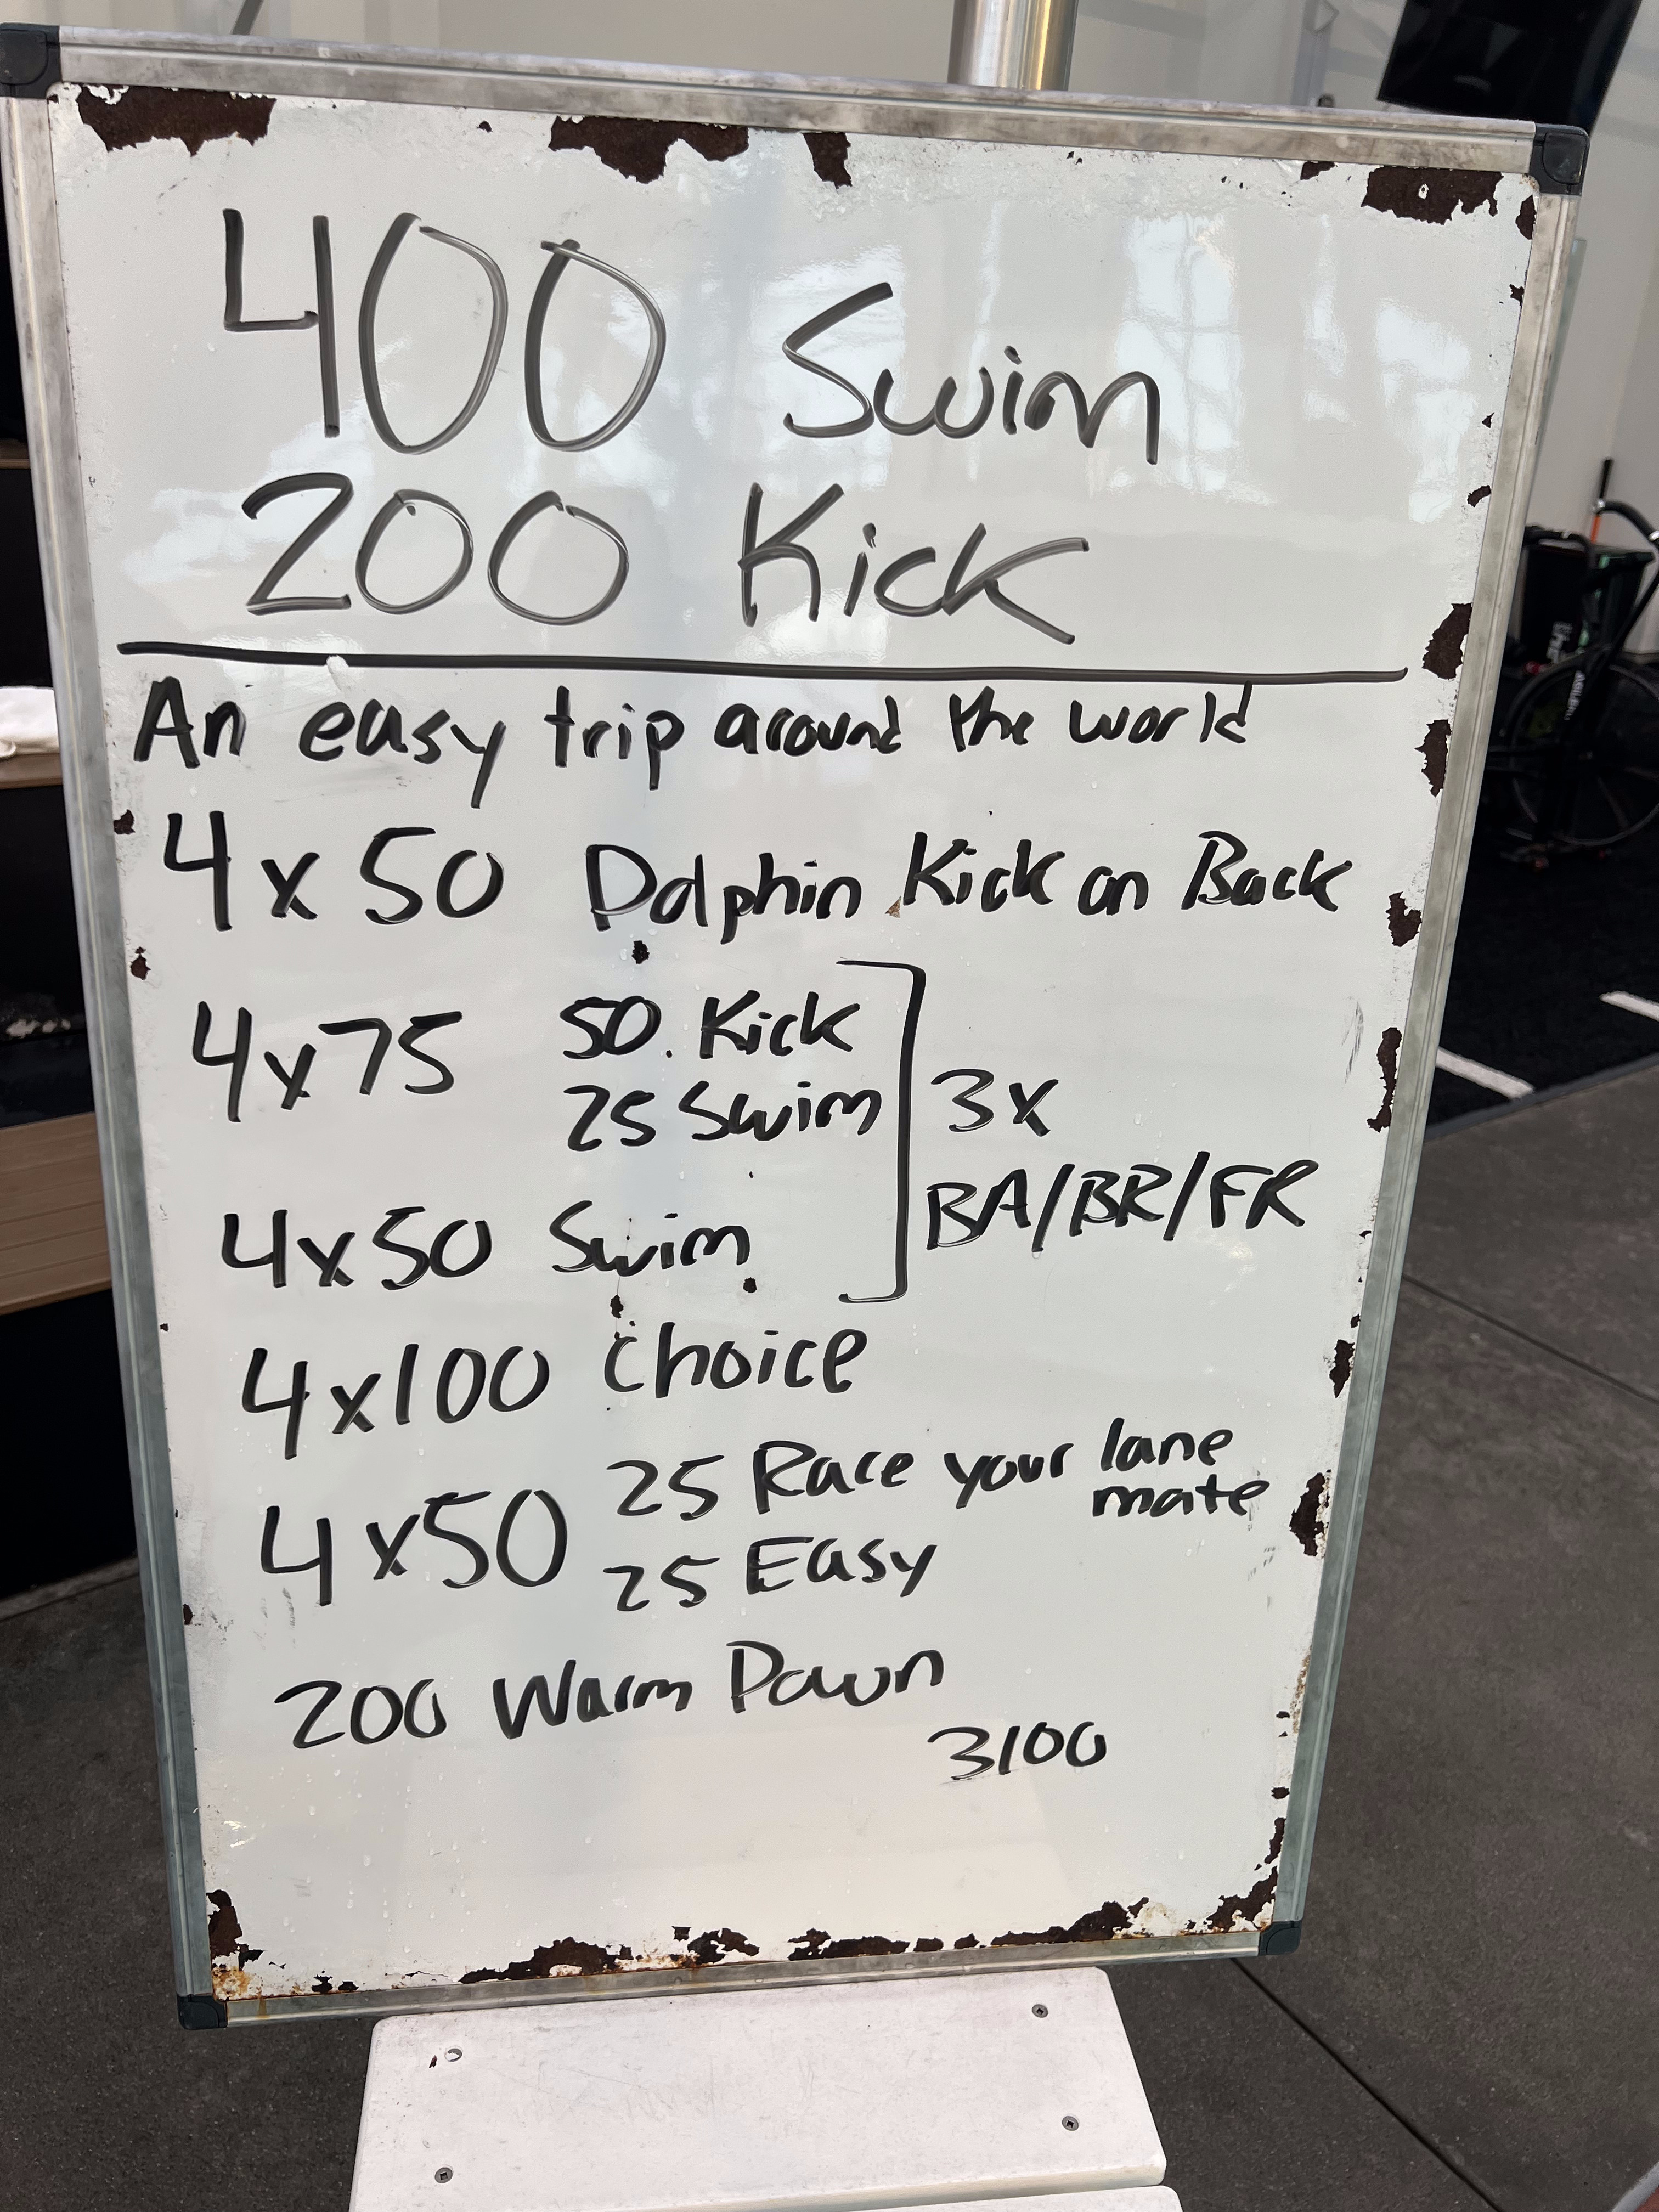 400 Swim
200 Kick
An easy trip around the world
4x50 Dolphin Kick on Back
4x75 50 Kick
25 Swim
3x
BA/BR/FR
4x50 Swim
4x100 Choice
4x50 25 Race your lane
mate
25 Easy
200 Warm Down
3100